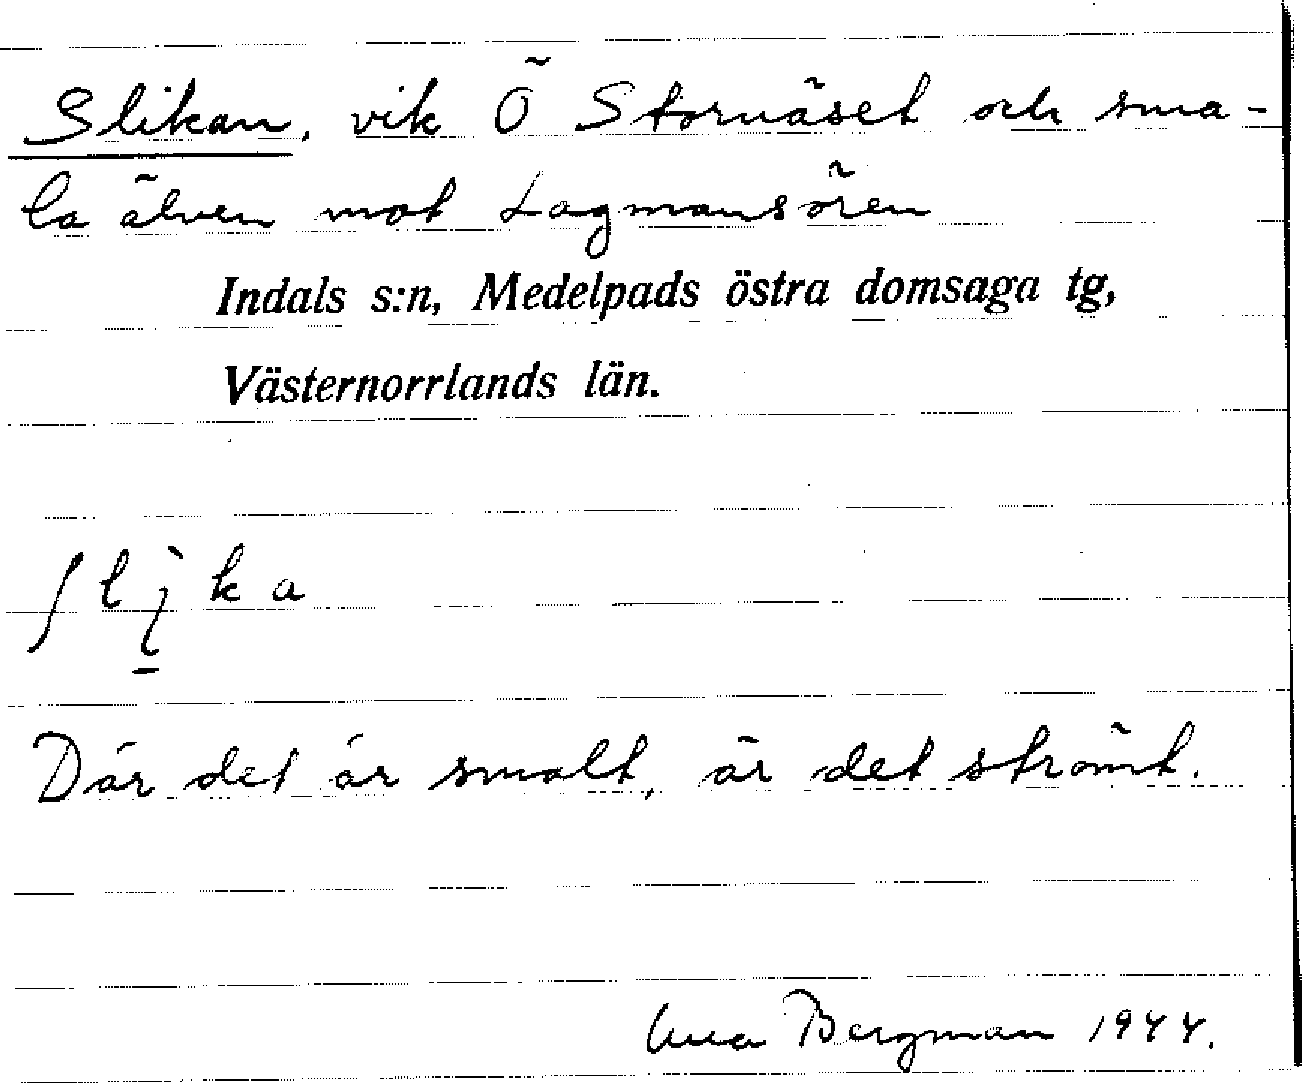 Slikan, vik Ö Stornäset och sma-
la älven mot Lagmansören
Indals s:n, Medelpads östra domsaga tg,
Västernorrlands län.
Där det är smalt, är det strömt.
Bergman 1944.